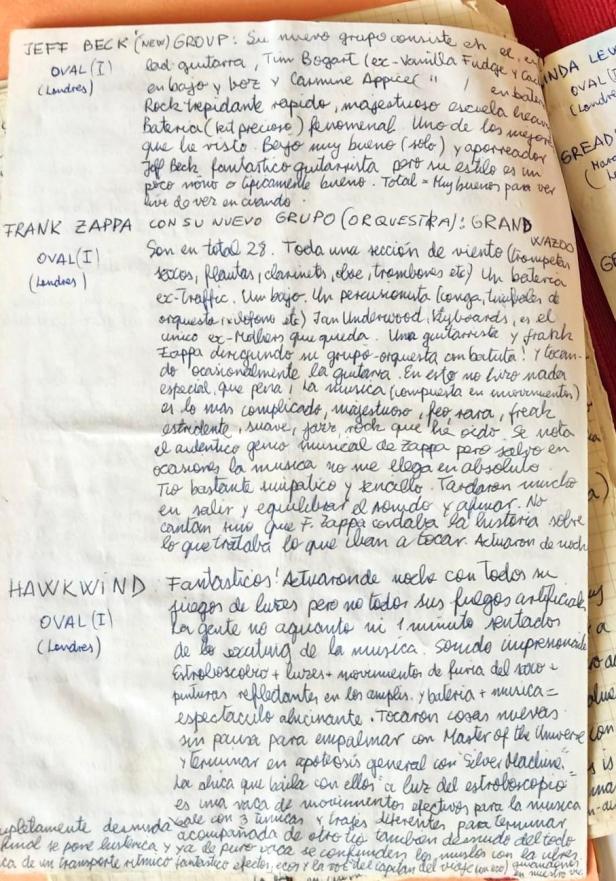 JEFF BECK (NEW) GROUP: Su nuevo grupo consiste en el, en
OVAL (I) lead guitarra, Tim Bogart (ex-Vanilla Fudge y Cac
(Londres) en bajo y voz y Carmine Appice ( " ) en bater
Rock trepidante rapido, majestuoso escuela heavy
Bateria (kit precioso) fenomenal. Uno de los mejores
que he visto. Bajo muy bueno (solo) y aporreador
Jeff Beck fantastico guitarrista pero su estilo es un
poco mono o tipicamente bueno. Total = Muy buenos para ver
live de vez en cuando.
FRANK ZAPPA CON SU NUEVO GRUPO (ORQUESTRA): GRAND
WAZOO
OVAL (I) Son en total 28. Toda una sección de viento (trompetas
(Londres) saxos, flautas, clarinets, oboe, trombones etc) Un bateria
ex-Traffic. Un bajo. Un percusionista (conga, timbales de
orquesta, xilofono etc) Ian Underwood, Keyboards, es el
unico ex-Mothers que queda. Una guitarrista y frank
Zappa dirigiendo su grupo-orquesta con batuta! y tocan-
do ocasionalmente la guitarra. En esto no hizo nada
especial, que pena! La musica (compuesta en movimientos)
es lo mas complicado, majestuoso, feo, rara, freak
estridente, suave, jazz, rock que he oido. Se nota
el autentico genio musical de Zappa pero salvo en
ocasiones la musica no me llega en absoluto.
Tio bastante simpatico y sencillo. Tardaron mucho
en salir y equilibrar el sonido y afinar. No
cantan sino que F. Zappa contaba la historia sobre
lo que trataba lo que iban a tocar. Actuaron de noche
HAWKWIND Fantasticos! Actuaron de noche con Todos su
OVAL (I) juegos de luces pero no todos sus fuegos artificiales
(Londres) La gente no aguanto ni 1 minuto sentados
de lo exciting de la musica. Sonido impresionante
Estroboscobio + luces + movimientos de furia del saxo +
pinturas reflectantes en los amplis. y bateria + musica =
espectaculo alucinante. Tocaron cosas nuevas
sin pausa para empalmar con Master of the Universe
y terminar en apoteosis general con Silver Machine.
La chica que baila con ellos a luz del estroboscopio
es una vaca de movimientos efectivos para la musica
sale con 3 tunicas y trajes diferentes para terminar
completamente desnuda acompañada de otro tio tambien desnudo del todo
final se pone histerica y ya de pura vaca se confunden los muslos con la ubres.
de un transporte ritmico fantastico efectos, ecos y la voz del capitan del viaje
INDA LEW
OVAL
(Londre
GREAD